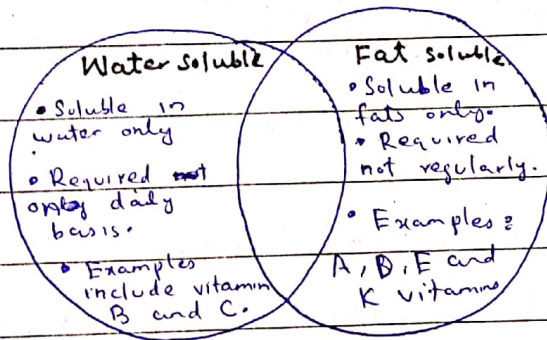 Water soluble
• Soluble in
water only
• Required
only daily
basis.
• Examples
include vitamin
B and C.
Fat soluble
• Soluble in
fats only.
• Required
not regularly.
• Examples:
A, D, E and
K vitamins